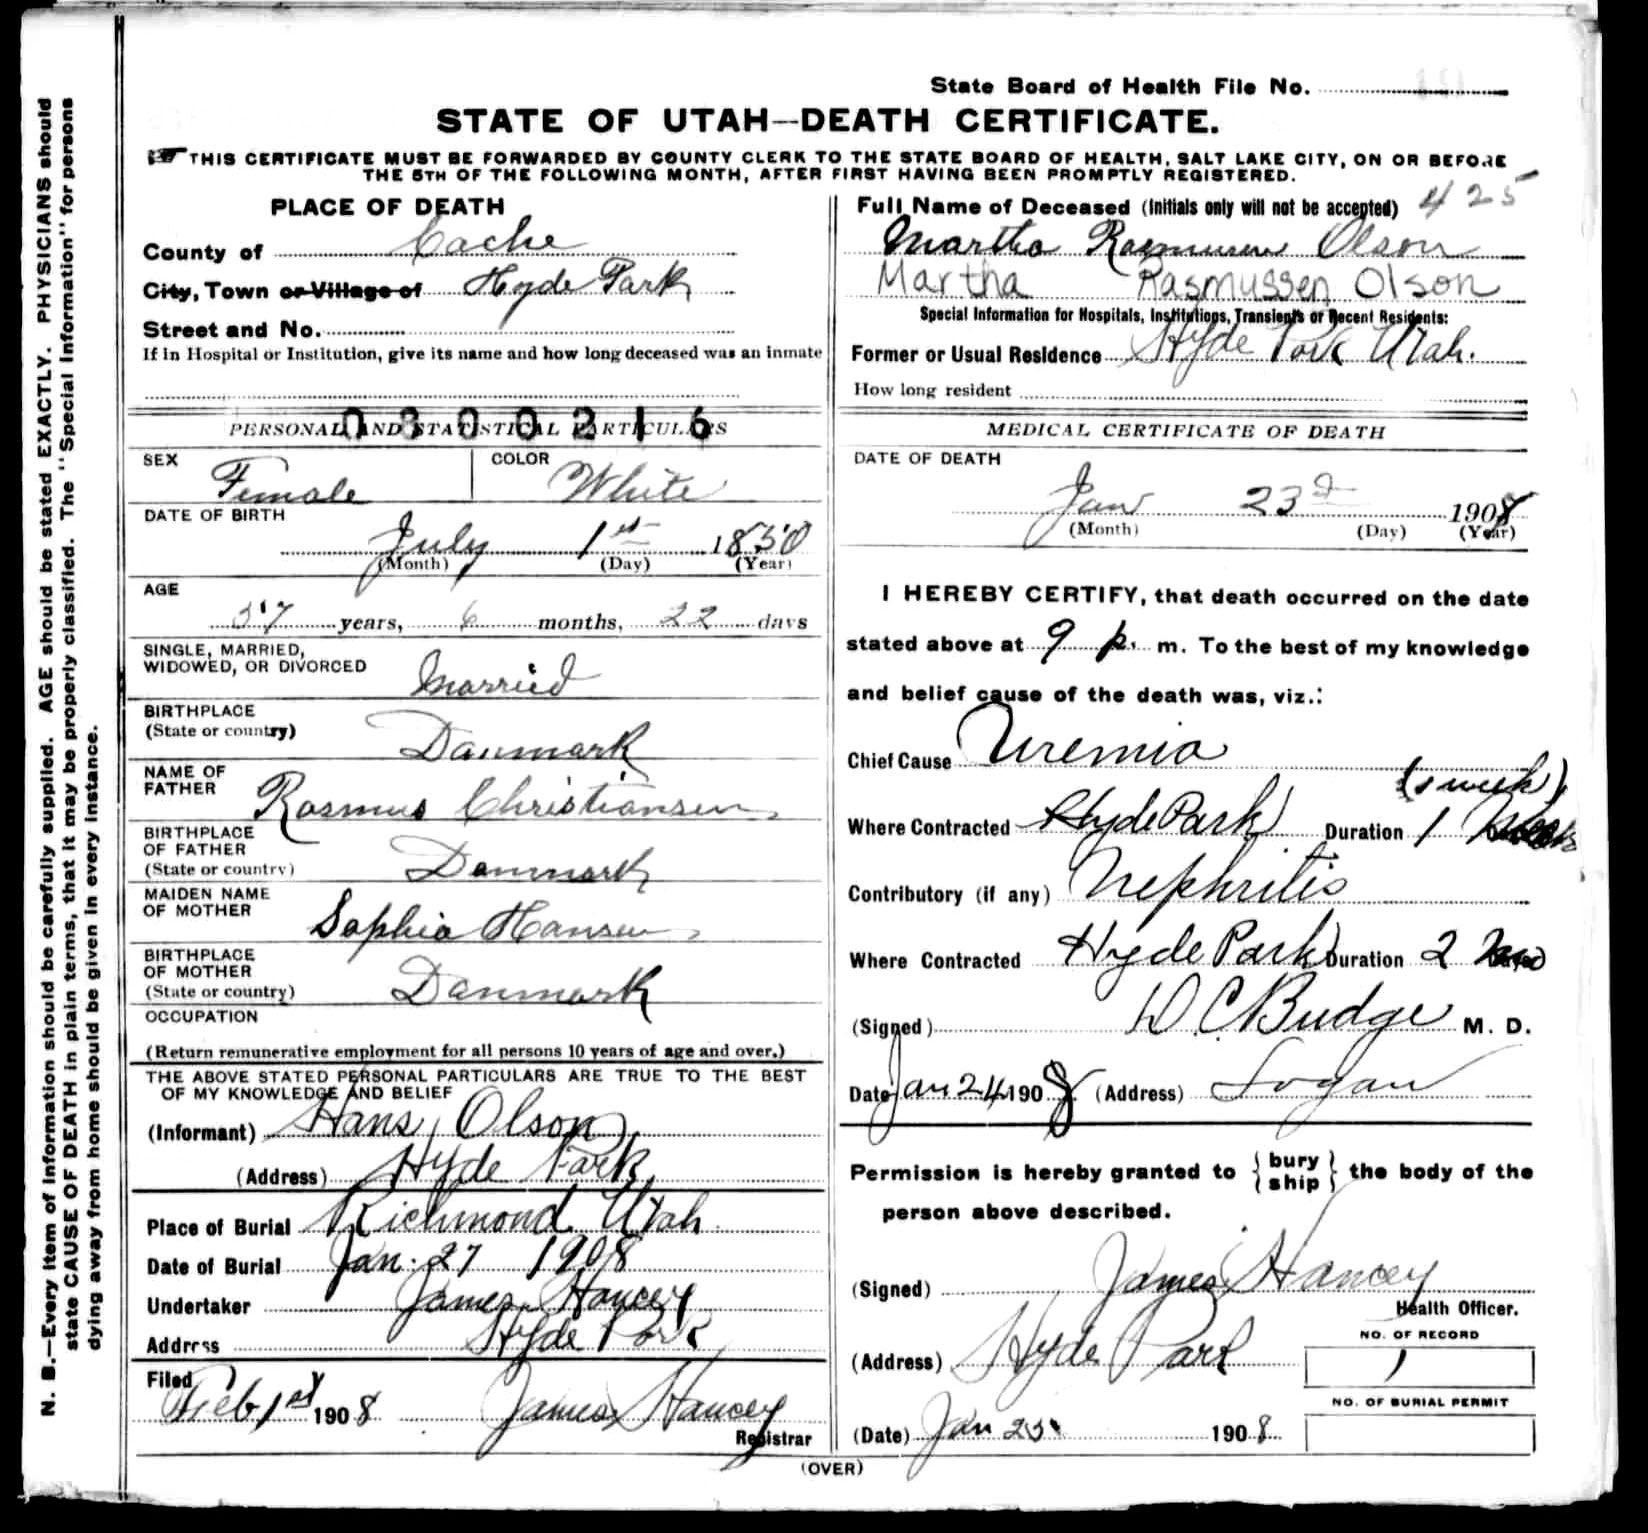 N. B.—Every item of information should be carefully supplied. AGE should be stated EXACTLY. PHYSICIANS should
state CAUSE OF DEATH in plain terms, that it may be properly classified. The "Special Information" for persons
dying away from home should be given in every instance.
State Board of Health File No.
STATE OF UTAH—DEATH CERTIFICATE.
THIS CERTIFICATE MUST BE FORWARDED BY COUNTY CLERK TO THE STATE BOARD OF HEALTH, SALT LAKE CITY, ON OR BEFORE
THE 5TH OF THE FOLLOWING MONTH, AFTER FIRST HAVING BEEN PROMPTLY REGISTERED.
PLACE OF DEATH
County of Cache
City, Town or Village of Hyde Park
Street and No.
If in Hospital or Institution, give its name and how long deceased was an inmate
0300216
PERSONAL AND STATISTICAL PARTICULARS
SEX Female COLOR White
DATE OF BIRTH
July 1st 1850
(Month) (Day) (Year)
AGE
57 years, 6 months, 22 days
SINGLE, MARRIED,
WIDOWED, OR DIVORCED Married
BIRTHPLACE
(State or country) Danmark
NAME OF
FATHER Rasmus Christiansen
BIRTHPLACE
OF FATHER
(State or country) Danmark
MAIDEN NAME
OF MOTHER Sophia Hansen
BIRTHPLACE
OF MOTHER
(State or country) Danmark
OCCUPATION
(Return remunerative employment for all persons 10 years of age and over.)
THE ABOVE STATED PERSONAL PARTICULARS ARE TRUE TO THE BEST
OF MY KNOWLEDGE AND BELIEF
(Informant) Hans Olson
(Address) Hyde Park
Place of Burial Richmond Utah
Date of Burial Jan. 27 1908
Undertaker James Hancey
Address Hyde Park
Filed
Feb 1st 1908 James Hancey
Registrar
Full Name of Deceased (Initials only will not be accepted) 425
Martha Rasmussen Olson
Martha Rasmussen Olson
Special Information for Hospitals, Institutions, Transients or Recent Residents:
Former or Usual Residence Hyde Park Utah.
How long resident
MEDICAL CERTIFICATE OF DEATH
DATE OF DEATH
Jan 23d 1908
(Month) (Day) (Year)
I HEREBY CERTIFY, that death occurred on the date
stated above at 9 p. m. To the best of my knowledge
and belief cause of the death was, viz.:
Chief Cause Uremia
(1 week)
Where Contracted Hyde Park Duration 1
Contributory (if any) Nephritis
Where Contracted Hyde Park Duration 2
(Signed) D C Budge M. D.
Date Jan 24 1908 (Address) Logan
Permission is hereby granted to { bury
ship } the body of the
person above described.
(Signed) James Hancey
Health Officer.
(Address) Hyde Park
NO. OF RECORD
1
NO. OF BURIAL PERMIT
(Date) Jan 25 1908
(OVER)